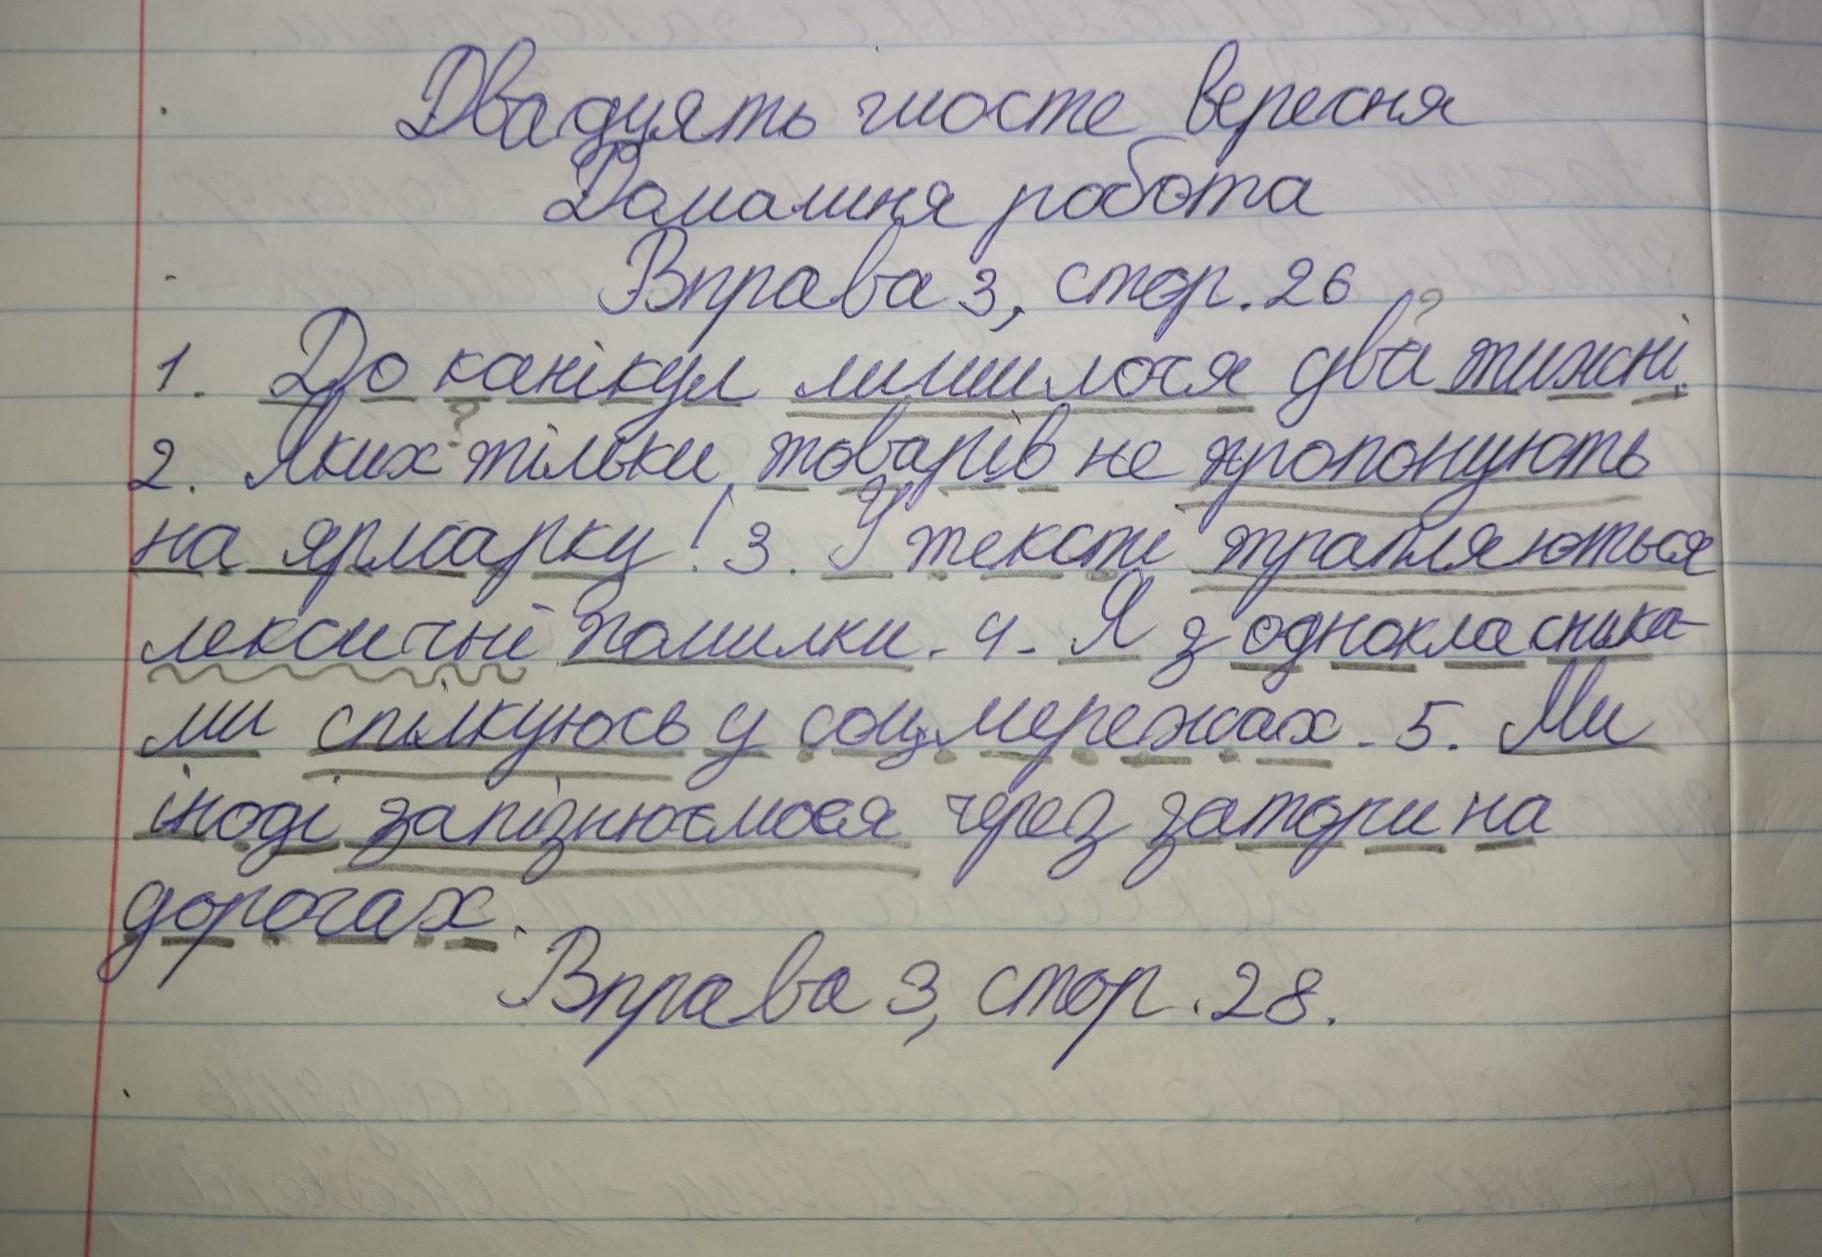 Двадцять шосте вересня
Домашня робота
Вправа 3, стор. 26
1. До канікул лишилося два тижні.
2. Яких тільки товарів не пропонують
на ярмарку! 3. У тексті трапляються
лексичні помилки. 4. Я з однокласника-
ми спілкуюсь у соцмережах. 5. Ми
іноді запізнюємося через затори на
дорогах.
Вправа 3, стор. 28.